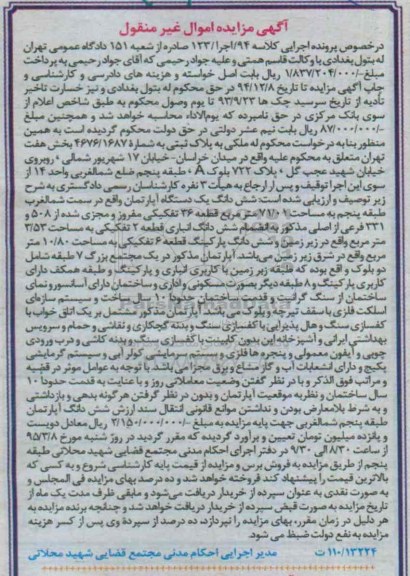 آگهی مزایده اموال غیر منقول
درخصوص پرونده اجرایی کلاسه ۹۴/اجرا/۱۳۳ صادره از شعبه ۱۵۱ دادگاه عمومی تهران
له بتول بغدادی با وکالت قاسم همتی و علیه جواد رحیمی که آقای جواد رحیمی به پرداخت
مبلغ ۱/۸۳۷/۲۰۴/۰۰۰/- ریال بابت اصل خواسته و هزینه های دادرسی و کارشناسی و
چاپ آگهی مزایده تا تاریخ ۹۴/۱۲/۸ در حق محکوم له بتول بغدادی و نیز خسارت تاخیر
تأدیه از تاریخ سررسید چک ها ۹۳/۹/۲۳ تا یوم وصول محکوم به طبق شاخص اعلام از
سوی بانک مرکزی در حق نامبرده که یوم الاداء محاسبه خواهد شد و همچنین مبلغ
۸۷/۰۰۰/۰۰۰/- ریال بابت نیم عشر دولتی در حق دولت محکوم گردیده است به همین
منظور بنا به درخواست محکوم له ملکی به پلاک ثبتی به شمارهٔ ۴۶۷۶/۱۶۸۷ بخش هفت
تهران متعلق به محکوم علیه واقع در میدان خراسان- خیابان ۱۷ شهریور شمالی ، روبروی
خیابان شهید عجب گل ، پلاک ۷۲۲ بلوک A ، طبقه پنجم ضلع شمالغربی واحد ۱۴ از
سوی این اجرا توقیف و پس از ارجاع به هیأت ۳ نفره کارشناسان رسمی دادگستری به شرح
زیر توصیف و ارزیابی شده است: شش دانگ یک دستگاه آپارتمان واقع در سمت شمالغرب
طبقه پنجم به مساحت ۷۱/۰۹ متر مربع قطعه ۳۶ تفکیکی مفروز و مجزی شده از ۵۰۸ و
۳۳۱ فرعی از اصلی مذکور به انضمام شش دانگ انباری قطعه ۲ تفکیکی به مساحت ۳/۵۳
متر مربع واقع در زیر زمین و شش دانگ پارکینگ قطعه ۶ تفکیکی به مساحت ۱۰/۸۰ متر
مربع واقع در شرق زیر زمین می باشد. آپارتمان مذکور در یک مجتمع بزرگ ۷ طبقه شامل
دو بلوک و اقع بوده که طبقه زیر زمین با کاربری انباری و پارکینگ و طبقه همکف دارای
کاربری پارکینگ و ۸ طبقه دیگر بصورت مسکونی و اداری و ساختمان دارای آسانسور و نمای
ساختمان از سنگ گرانیت و قدمت ساختمان حدوداً ۱۰ سال ساخت و سیستم سازه ای
اسکلت فلزی با سقف تیرچه و بلوک می باشد آپارتمان مذکور مشتمل بر یک اتاق خواب با
کفسازی سنگ و هال پذیرایی با کفسازی سنگ و بدنه گچکاری و نقاشی و حمام و سرویس
بهداشتی ایرانی و آشپزخانه این بدون کابینت با کفسازی سنگ و بدنه کاشی و درب ورودی
چوبی و آیفون معمولی و پنجره ها فلزی و سیستم سرمایشی کولر آبی و سیستم گرمایشی
پکیج و دارای انشعابات آب و گاز مشاع و برق مجزا می باشد با توجه به عوامل موثر در قضیه
و مراتب فوق الذکر و با در نظر گفتن وضعیت معاملاتی روز و با عنایت به قدمت حدوداً ۱۰
سال ساختمان و نظر به موقعیت آپارتمان و بدون در نظر گرفتن هرگونه بدهی و بازداشتی
و به شرط بلامعارض بودن و نداشتن موانع قانونی انتقال سند ارزش شش دانگ آپارتمان
طبقه پنجم شمالغربی جهت پایه مزایده به مبلغ ۲/۱۵۰/۰۰۰/۰۰۰/- ریال معادل دویست
و پانزده میلیون تومان تعیین و برآورد گردیده که مقرر گردید در روز شنبه مورخ ۹۵/۳/۸
از ساعت ۸/۳۰ الی ۹/۳۰ در دفتر اجرای احکام مدنی مجتمع قضایی شهید محلاتی طبقه
پنجم از طریق مزایده به فروش برس و مزایده از قیمت پایه کارشناسی شروع و به کسی که
بالاترین قیمت را پیشنهاد کند فروخته خواهد شد و ده درصد بهای مزایده فی المجلس و
به صورت نقدی به عنوان سپرده از خریدار دریافت می شود و مابقی ظرف مدت یک ماه از
تاریخ مزایده به صورت قبض سپرده از خریدار دریافت خواهد شد و چنانچه برنده مزایده به
هر دلیل در زمان مقرر، بهای مزایده را نپردازد، ده درصد از سپردهٔ وی پس از کسر هزینه
مزایده به نفع دولت ضبط می شود.
۱۱۰/۱۳۲۲۴ ت مدیر اجرایی احکام مدنی مجتمع قضایی شهید محلاتی